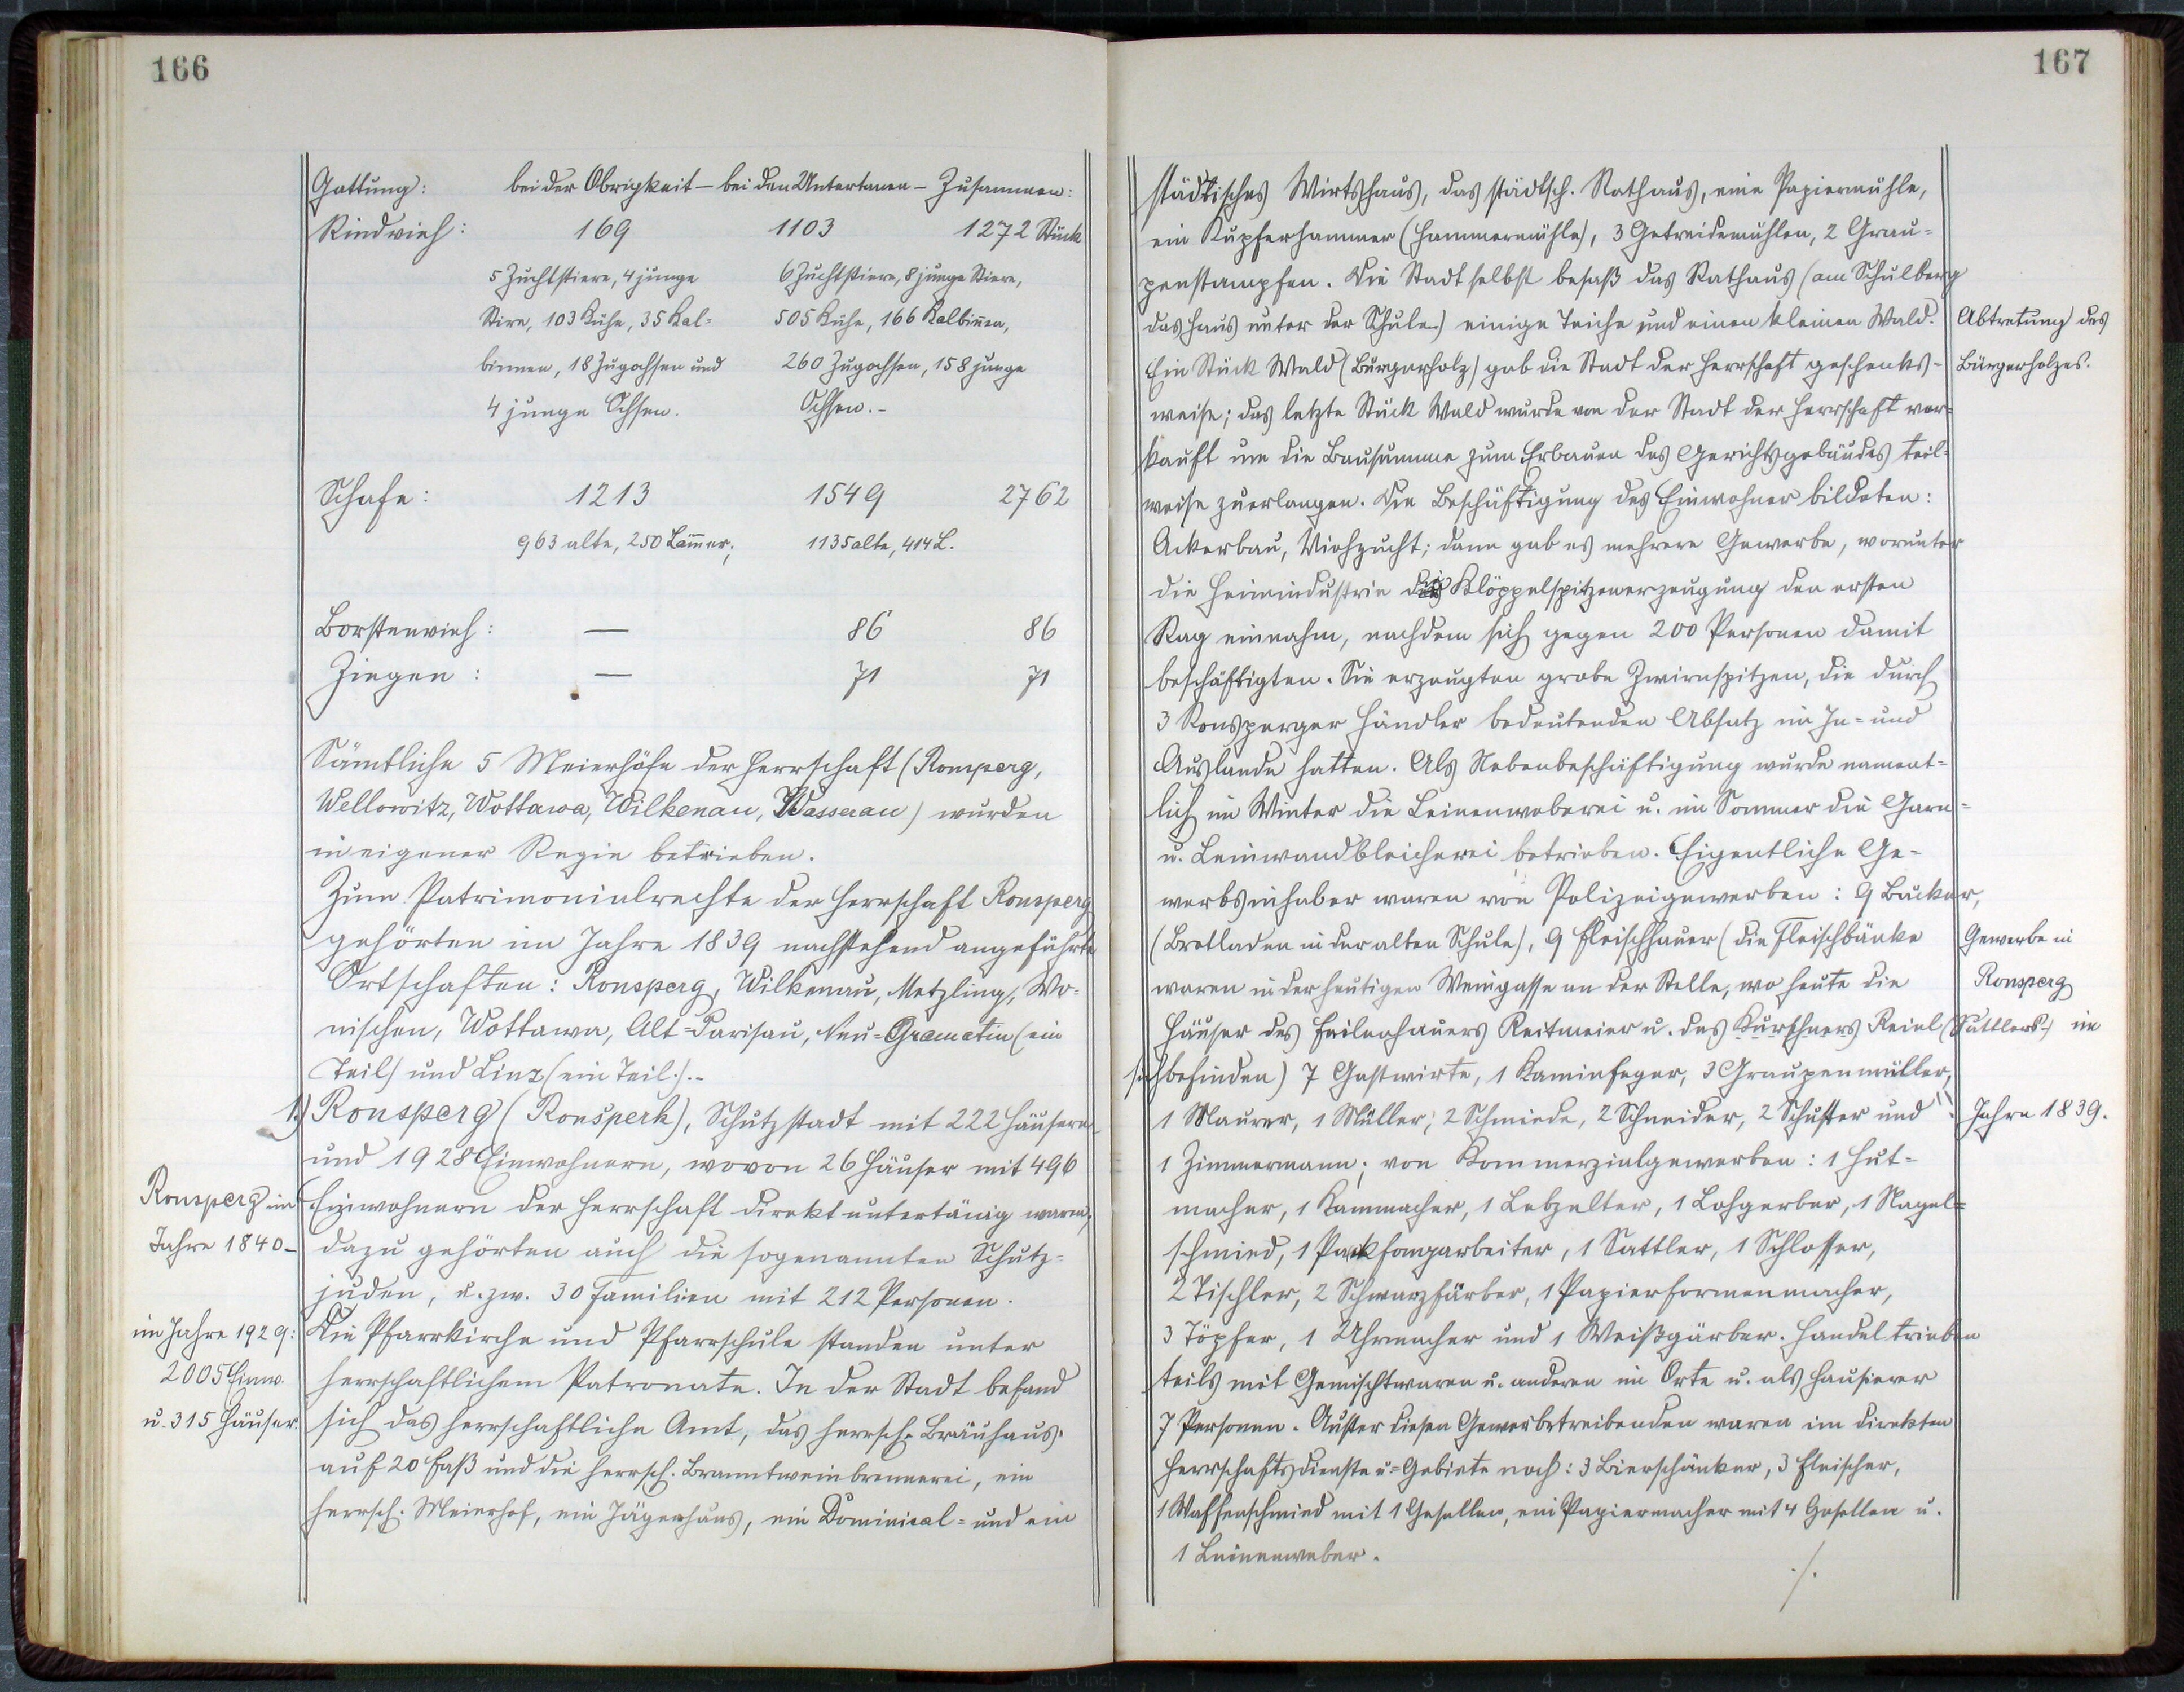 166
Gattung: bei der Obrigkeit – bei den Untertanen – Zusammen:
Rindvieh: 169 1103 1272 Stück
5 Zuchtstiere, 4 junge 6 Zuchtstiere, 8 junge Stiere,
Stire, 103 Kühe, 35 Kal= 505 Kühe, 166 Kalbin̄en,
binnen, 18 Zugochsen und 260 Zugochsen, 158 junge
4 junge Ochsen. Ochsen.–
Schafe: 1213 1549 2762
963 alte, 250 Läm̄er; 1135 alte, 414 L.
Borstenvieh: — 86 86
Ziegen: — 71 71
Sämtliche 5 Meierhöfe der Herrschaft (Ronsperg,
Wellowitz, Wottawa, Wilkenau, Wasserau) wurden
in eigener Regie betrieben.
Zum Patrimonialrechte der Herrschaft Ronsperg
gehörten im Jahre 1839 nachstehend angeführte
Ortschaften: Ronsperg, Wilkenau, Metzling, Wo=
nischen, Wottawa, Alt=Parisau, Neu=Gramatin (ein
Teil) und Linz (ein Teil).–
1.) Ronsperg (Ronšperk), Schutzstadt mit 222 Häusern
und 1928 Einwohnern, wovon 26 Häuser mit 496
Ronsperg im Einwohnern der Herrschaft direkt untertänig waren;
Jahre 1840– dazu gehörten auch die sogenannten Schutz=
juden, u. zw. 30 Familien mit 212 Personen.
im Jahre 1929: Die Pfarrkirche und Pfarrschule standen unter
2005 Einw. herrschaftlichem Patronate. In der Stadt befand
u. 315 Häuser. sich das herrschaftliche Amt, das herrsch. Bräuhaus
auf 20 Faß und die herrsch. Branntweinbrennerei, ein
herrsch. Meierhof, ein Jägerhaus, ein Dominical= und ein
167
städtisches Wirtshaus, das städtsch. Rathaus, eine Papiermühle,
ein Kupferhammer (Hammermühle), 3 Getreidemühlen, 2 Grau=
penstampfen. Die Stadt selbst besaß das Rathaus (am Schulberg
das Haus unter der Schule.) einige Teiche und einen kleinen Wald. Abtretung des
Ein Stück Wald (Bürgerholz) gab die Stadt der Herrschaft geschenks- Bürgerholzes.
weise; das letzte Stück Wald wurde von der Stadt der Herrschaft ver=
kauft um die Bausumme zum Erbauen des Gerichtsgebäudes teil=
weise zu erlangen. Die Beschäftigung des Einwohner bildeten:
Ackerbau, Viehzucht; dann gab es mehrere Gewerbe, worunter
die Heimindustrie die Klöppelspitzenerzeugung den ersten
Rag einnahm, nachdem sich gegen 200 Personen damit
beschäftigten. Sie erzeugten grobe Zwirnspitzen, die durch
3 Ronsperger Händler bedeutenden Absatz im In= und
Auslande hatten. Als Nebenbeschäftigung wurde nament=
lich im Winter die Leinenweberei u. im Sommer die Garn=
u. Leinwandbleicherei betrieben. Eigentliche Ge=
werbsinhaber waren von Polizeigewerben: 9 Bäcker,
(Brotladen in der alten Schule), 9 Fleischhauer (die Fleischbänke Gewerbe in
waren in der heutigen Weingasse an der Stelle, wo heute die Ronsperg
Häuser des Feilenhauers Reitmeier u. des Kürschners Reinl (Sattlers) im
sich befinden) 7 Gastwirte, 1 Kaminfeger, 3 Graupenmüller,
1 Maurer, 1 Müller, 2 Schmiede, 2 Schneider, 2 Schuster und Jahre 1839.
1 Zimmermann; von Kommerzialgewerben: 1 Hut=
macher, 1 Kammacher, 1 Lebzelter, 1 Lohgerber, 1 Nagel=
schmied, 1 Packfongarbeiter, 1 Sattler, 1 Schlosser,
2 Tischler, 2 Schwarzfärber, 1 Papierformenmacher,
3 Töpfer, 1 Uhrmacher und 1 Weißgärber. Handel trieben
teils mit Gemischtwaren u. anderen im Orte u. als Hausierer
7 Personen. Außer diesen Gewerbetreibenden waren im direkten
Herrschaftsdienste u=Gebiete noch: 3 Bierschänker, 3 Fleischer,
1 Waffenschmied mit 1 Gesellen, ein Papiermacher mit 4 Gesellen u.
1 Leinenweber.
./.